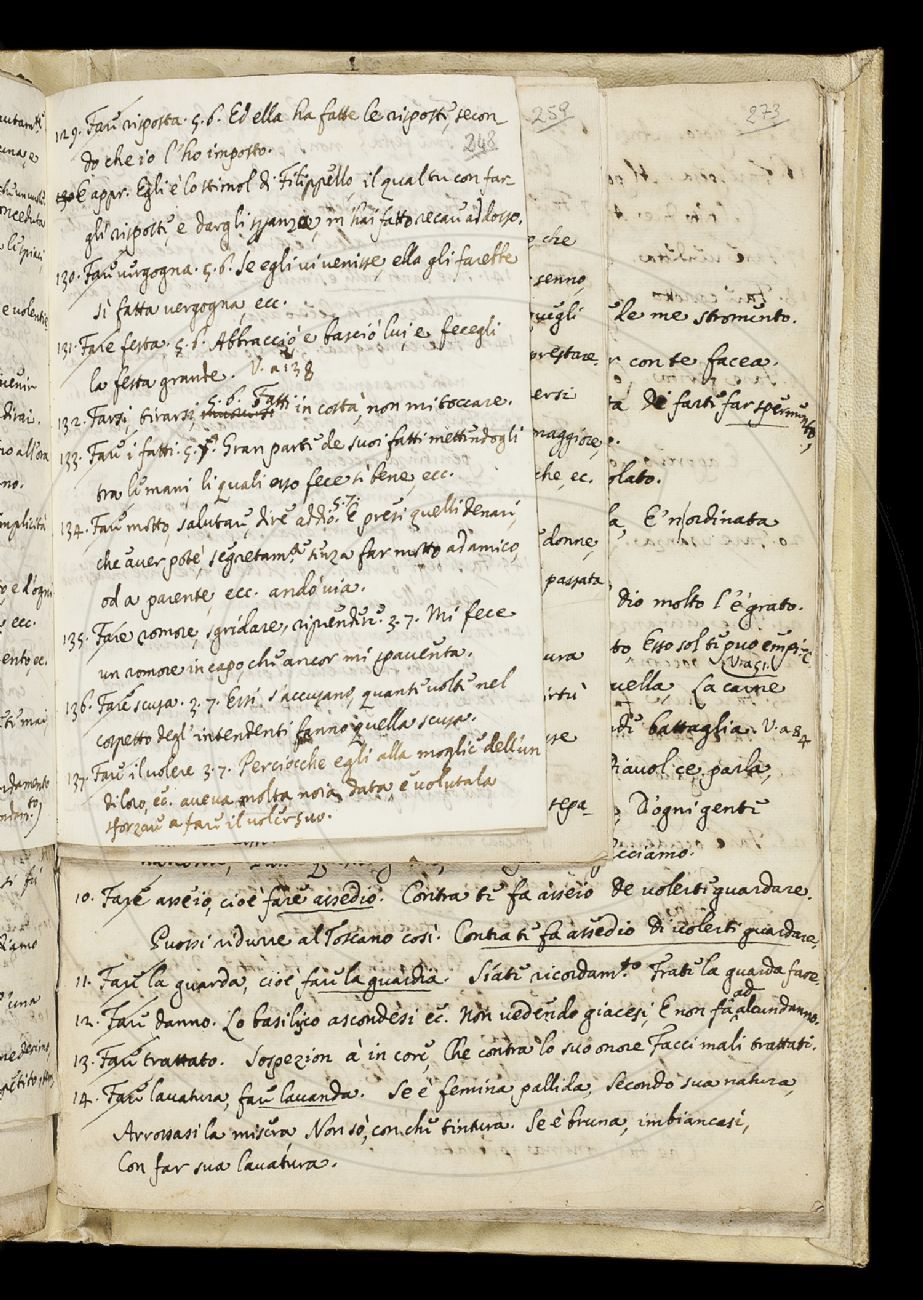 129. Fare risposta. 5. 6. Ed ella ha fatte le risposte, secon-
do che io l'ho imposto.
248
130 E appr. Egli è lo stimol di Filippello il qual tu con far-
gli risposte, e dargli speranze, m'hai fatto recare addosso.
130. Fare vergogna. 5. 6. Se egli vi venisse, ella gli farebbe
sì fatta vergogna, ecc.
131. Fare festa. 5. 6. Abbracciò e basciò lui, e fecegli
la festa grande. V. a 138
132. Farsi, tirarsi, 5. 6. Fatti in costà, non mi toccare.
133. Fare i fatti. 5. 7. Gran parte de suoi fatti mettendogli
tra le mani li quali esso fece sì bene, ecc.
134. Fare motto, salutare, dire addio. 5. 7. E presi quelli denari,
che aver poté, segretam.te senza far motto ad amico,
od a parente, ecc. andò via.
135. Fare romore, sgridare, riprendere. 3. 7. Mi fece
un romore in capo, che ancor mi spaventa.
136. Fare scusa. 3. 7. Essi s'accusano, quante volte nel
cospetto degl'intendenti fanno quella scusa.
137. Fare il volere 3. 7. Perciocche egli alla moglie dell'un
di loro, ec. aveva molta noia data, e volutala
sforzare a fare il voler suo.
259
che
senno,
quegli
prestare.
ersi
maggiore,
che, ec.
donne,
passata
ura
irtù
sepa-
273
le me stromento.
con te facea.
de farti far spermento,
olato.
E n'ordinata
dio molto l'è grato.
to Esso sol ti può empi-
V. a 51.
uella, La carne
di battaglia. V. a 84
Diavol ce parla,
D'ogni gente
cciamo.
10. Fare asseio, cioè fare assedio. Contra te fa asseio De volerti guardare.
Puossi ridurre al Toscano così. Contra te fa assedio di volerti guardare.
11. Fare la guarda, cioè fare la guardia. Siate ricordam.to Frate la guarda fare.
12. Fare danno. Lo basilico ascondesi ec. Non vedendo giacesi, E non fa ad alcun danno.
13. Fare trattato. Sospezion à in core, Che contra lo suo onore Facci mali trattati.
14. Fare lavatura, fare lavanda. Se è femina pallida, Secondo sua natura,
Arrossasi la misera, Non sò, con che tintura. Se è bruna, imbiancasi,
Con far sua lavatura.